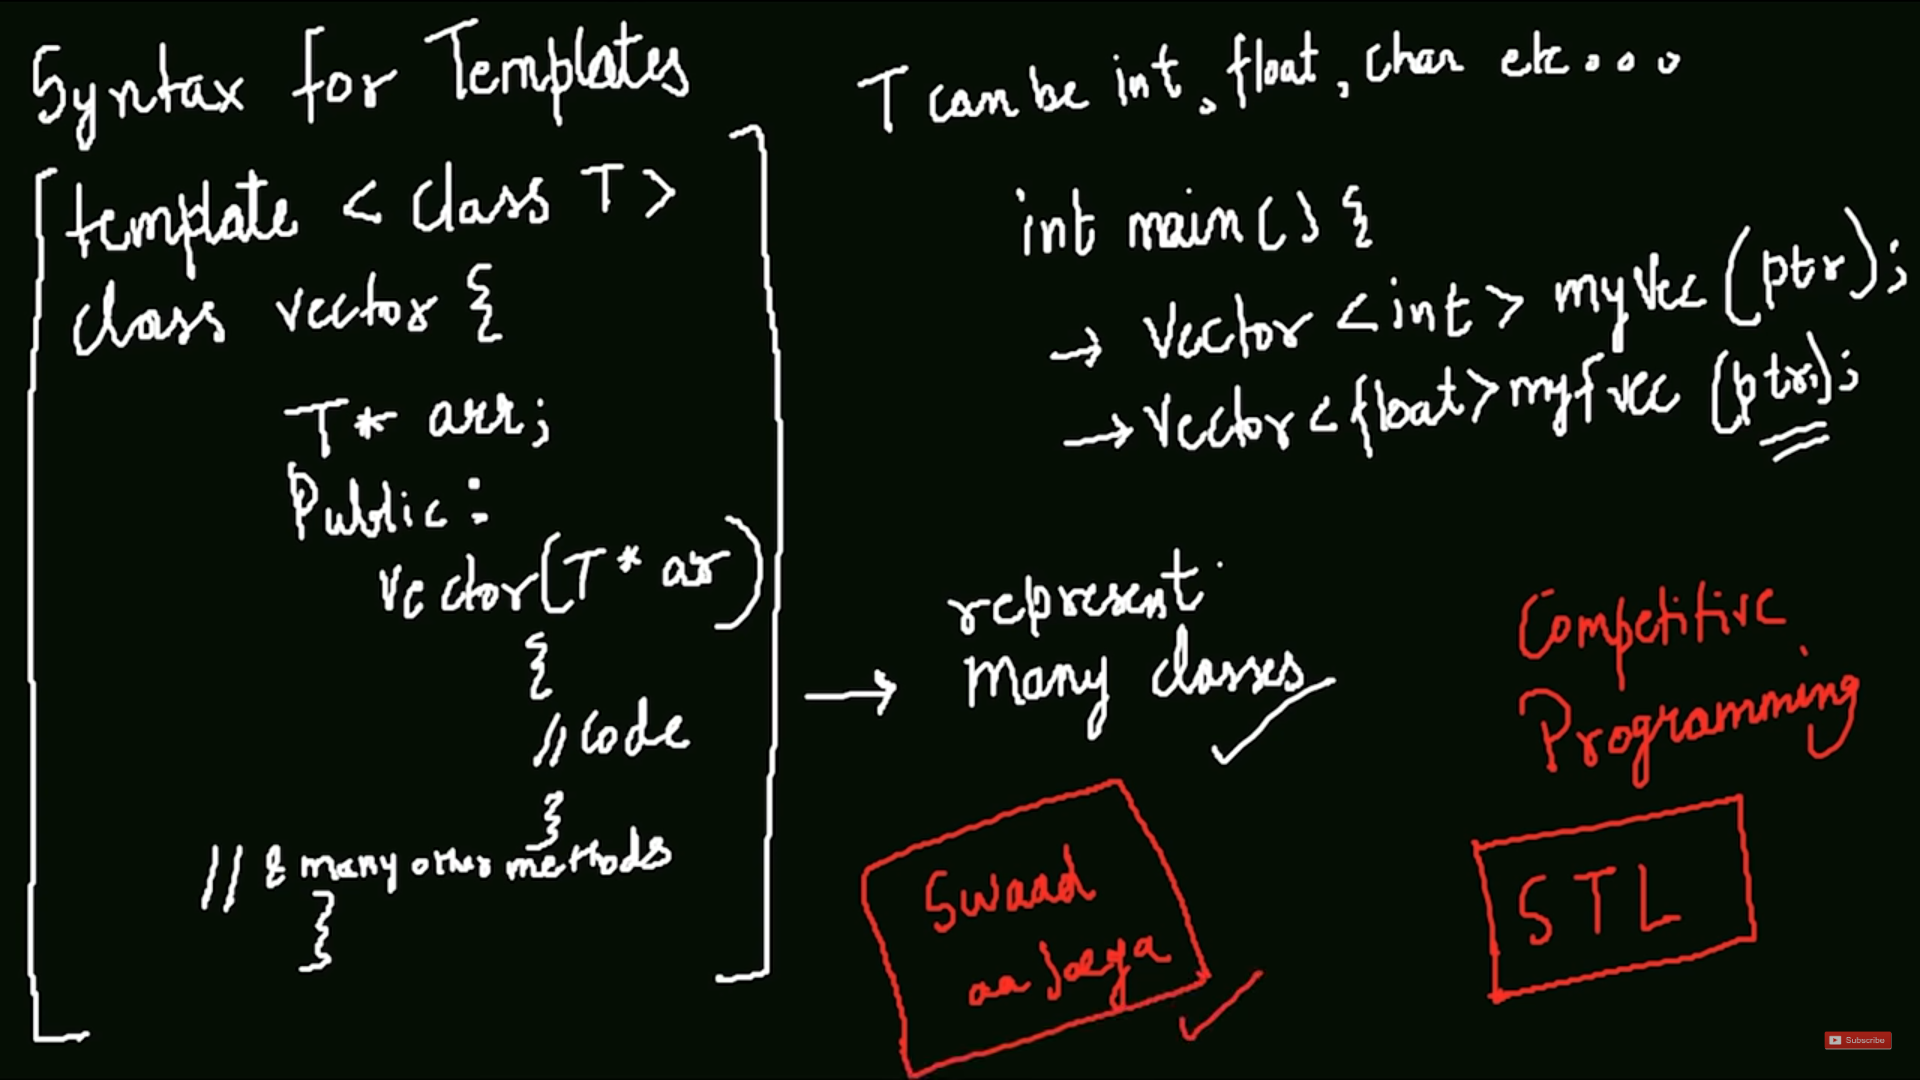 Syntax for Templates
template < class T >
class vector {
T* arr;
Public:
vector(T* ar)
{
// code
}
// & many other methods
}
T can be int, float, char etc...
int main() {
→ vector <int> myvec (ptr);
→ vector <float> myfvec (ptr);
→ represent
many classes
Swaad
aa Jaega
Competitive
Programming
STL
Subscribe